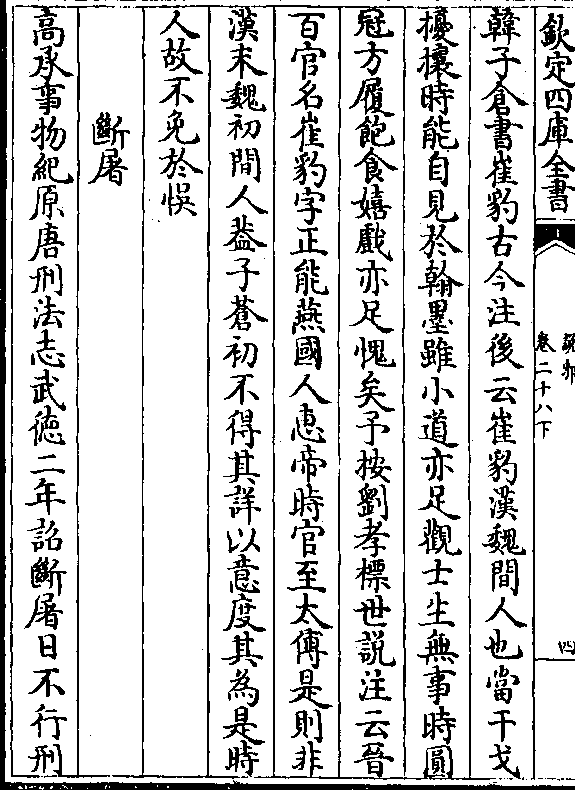 欽定四庫全書
說郛
卷二十八下
四
韓子倉書崔豹古今注後云崔豹漢魏間人也當干戈
擾攘時能自見於翰墨雖小道亦足觀士生無事時圓
冠方履飽食嬉戲亦足愧矣予按劉孝標世說注云晉
百官名崔豹字正能燕國人惠帝時官至太傅是則非
漢末魏初間人葢子蒼初不得其詳以意度其為是時
人故不免於悞
斷屠
高承事物紀原唐刑法志武徳二年詔斷屠日不行刑